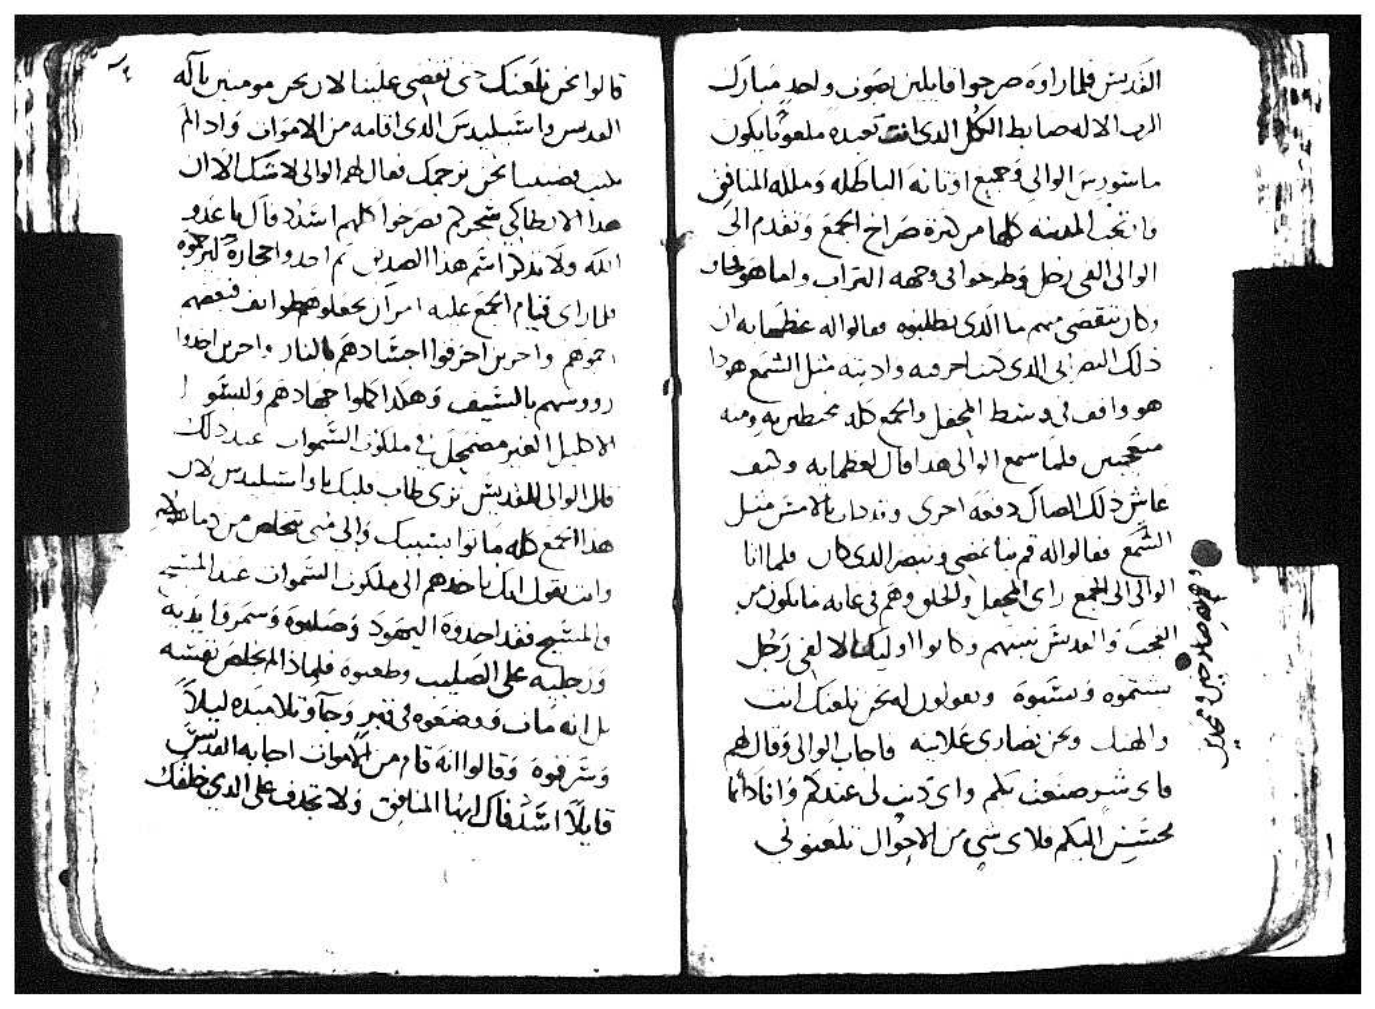 القديس فلما راوه صرخوا قايلين بصوت واحد مبارك
الرب الاله ضابط الكل الدى انت تعبده ملعونا يكون
الوالى وجميع اوتانه الباطله وملله المنافق
وارتجت المدينه كلها من كترة صراخ الجمع وتقدم الى
الوالى الفى رجل وطرحوا فى وجهه التراب واما هو فخاف
وكان يتقصى منهم ما الدى يطلبوه فقالوا له عظمايه ان
دلك النصرانى الدى كنت احرقته وادبته مثل الشمع هودا
هو واقف فى وسط المحفل والجمع كله محيطين به ومنه
متعجبين فلما سمع الوالى هدا قال لعظمايه وكيف
عاش دلك الضال دفعه اخرى وقد داب بالامس مثل
الشمع فقالوا له قم بنا نمضى وننضر الدى كان فلما اتا
الوالى الى الجمع راى المحفل والخلق وهم فى غايه ما يكون من
العجب والقديس بينهم وكانوا اوليك الالفى رجل
يشتموه ويسبوه ويقولون له نحن نلعنك انت
والهتك ونحن نصارى علانيه فاجاب الوالى وقال لهم
فاى شر صنعت بكم واى دنب لى عندكم وانا دائما
محسن اليكم فلاى شى من الاحوال تلعنونى
قالوا نحن نلعنك حتى تقضى علينا لاننا نحن مومنين باله
القديس واسيليدس الدى اقامه من الاموات وادا لم
تكتب قضيتنا نحن نرجمك فقال لهم الوالى لا شك الا ان
هدا الانطاكى سحركم فصرخوا كلهم استد فاك يا عدو
الله ولا تدكر اسم هدا الصديق تم اخدوا حجارة ليرجموه
فلما راى قيام الجمع عليه امر ان يجعلوهم طوايف فبعضهم
رجموهم واخرين احرقوا اجسادهم بالنار واخرين اخدوا
رووسهم بالسيف وهكدا كملوا جهادهم ولبسوا
الاكليل الغير مضمحل فى ملكوت السموات عند دلك
قال الوالى للقديس ترى طاب قلبك يا واسيليدس لان
هدا الجمع كله ماتوا بسببك والى متى تتخلص من دما هولاى
وانت تقول انك تاخدهم الى ملكوت السموات عند المسيح
والمسيح فقد اخدوه اليهود وصلبوه وسمروا يديه
ورجليه على الصليب وطعنوه فلمادا لم يخلص نفسه
بل انه مات ووضعوه فى قبر وجاو تلاميده ليلا
وسرقوه وقالوا انه قام من الاموات اجابه القديس
قايلا استد فاك ايها المنافق ولا تجدف على الدى خلقك